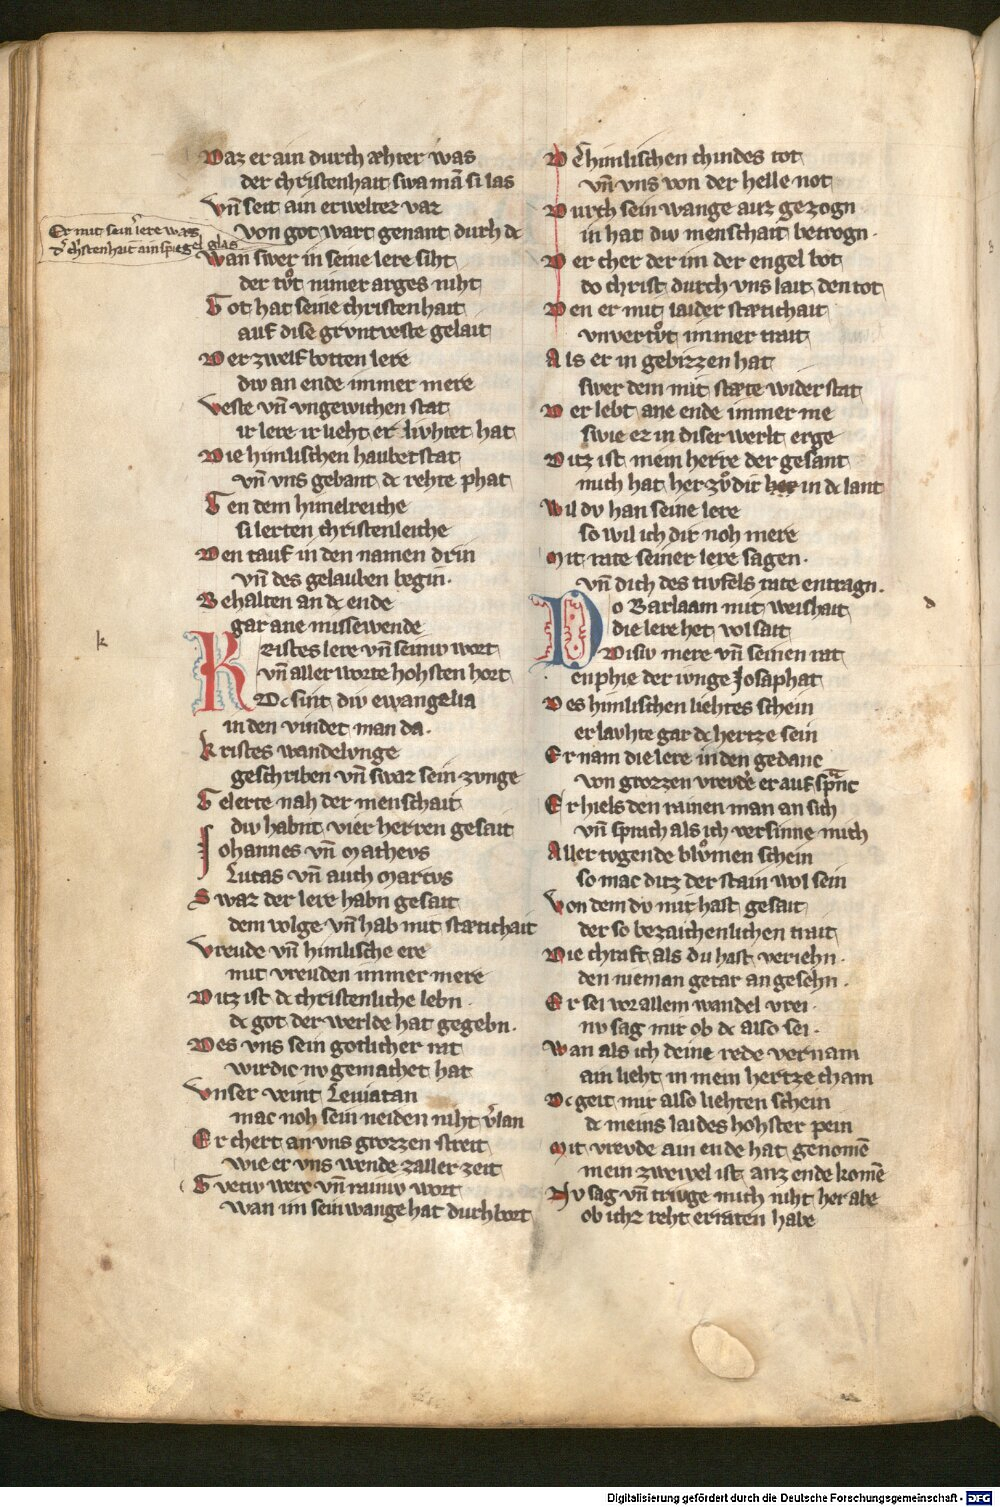 Daz er ain durch æhter was
der christenhait swa mā si las
Vn̄ seit ain erwelter uaz
Er mit sein͛ lere was
d͛ ch͛stenhait ain spiegel glas
von got wart genant durh dc
Wan swer in seine lere siht
der tůt nimer arges niht
Got hat seine christenhait
auf dise grvntveste gelait
Der zwelfbotten lere
div an ende immer mere
Veste vn̄ vngewichen stat
ir lere ir lieht erlivhtet hat
Die himlischen haubetstat
vn̄ vns gebant dc rehte phat
Gen dem himelreiche
si lerten christenleiche
Den tauf in den namen drin
vn̄ des gelauben begin.
Behalten an dc ende
gar ane missewende
Kristes lere vn̄ seiniv wort
vn̄ aller worte hohsten hort
Dc sint div ewangelia
in den vindet man da.
Kristes wandelvnge
geschriben vn̄ swaz sein zvnge
Gelerte nah der menschait
div habnt vier herren gesait
Johannes vn̄ Matheus
Lucas vn̄ auch Marcvs
Swaz der lere habn gesait
dem volge vn̄ hab mit stætichait
Vreude vn̄ himlische ere
mit vreuden immer mere
Ditz ist dc christenliche lebn.
dc got der werlde hat gegebn.
Des vns sein gotlicher rat
wirdic nv gemachet hat
Vnser veint Leuiatan
mac noh sein neiden niht v͛lan
Er chert an vns grozzen streit
wie er vns wende zaller zeit
Gvetiv were vn̄ rainiv wort
wan im sein wange hat durhbort
D himlischen chindes tot
vn̄ vns von der helle not
Durch sein wange auz gezogn
in hat div menschait betrogn.
Der cher der im der engel bot
do christ durch vns lait den tot
Den er mit laider stætichait
vnvertůt immer trait
Als er in gebizzen hat
swer dem mit stæte widerstat
Der lebt ane ende immer me
swie ez in diser werlt erge
Ditz ist mein herre der gesant
mich hat her zv̊ dir her in dc lant
Wil dv han seine lere
so wil ich dir noh mere
Mit rate seiner lere sagen.
vn̄ dich des tivfels rate entragn.
Do Barlaam mit weishait
die lere het vol sait
Disiv mere vn̄ seinen rat
enphie der ivnge Josaphat
Des himlischen liehtes schein
erlavhte gar dc hertze sein
Er nam die lere in den gedanc
von grozzen vrevden er auf spranc
Er hiels den rainen man an sich
vn̄ sprach als ich versinne mich
Aller tvgende blůmen schein
so mac ditz der stain wol sein
Von dem dv mir hast gesait
der so bezaichenlichen trait
Die chraft als du hast veriehn.
den nieman getar an gesehn.
Er sei vor allem wandel vrei.
nv sag mir ob dc also sei.
Wan als ich deine rede vernam
ain lieht in mein hertze cham
Dc geit mir also liehten schein
dc meins laides hohster pein
Mit vrevde ain ende hat genomē
mein zweiuel ist anz ende komē
Nv sag vn̄ trivge mich niht her abe
ob ichz reht erraten habe
k
d
Digitalisierung gefördert durch die Deutsche Forschungsgemeinschaft - DFG